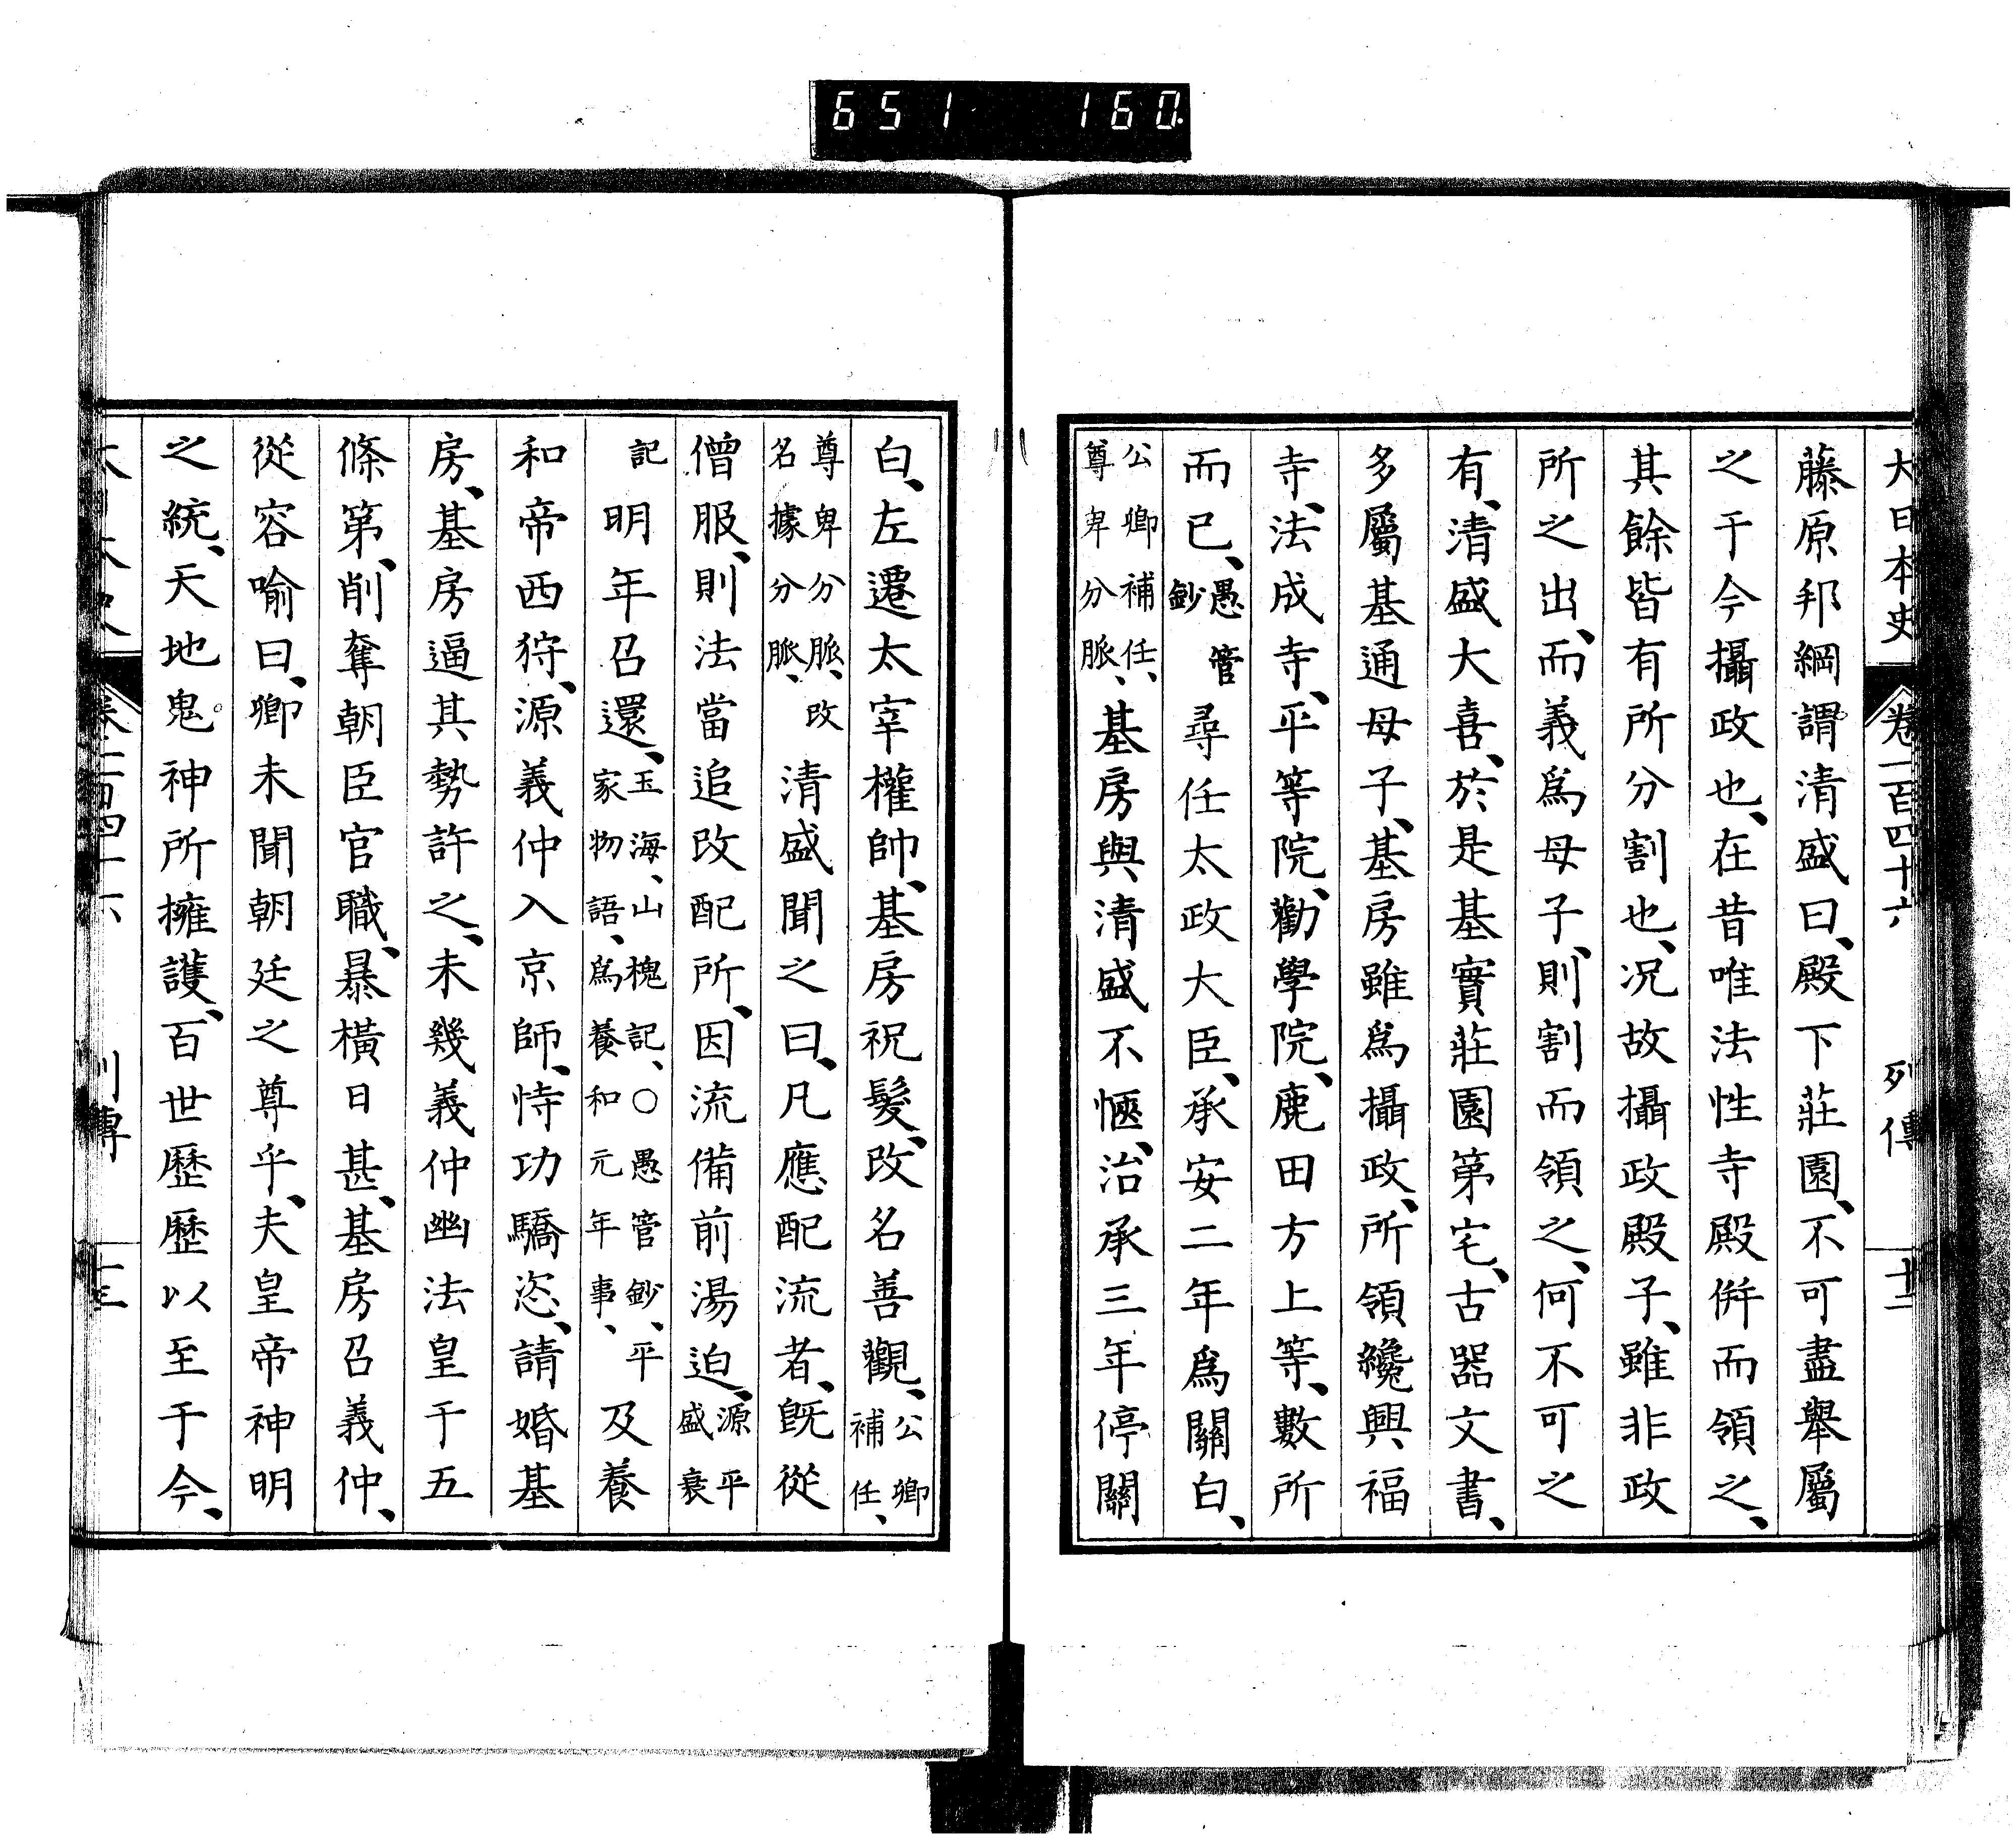 651 160
大日本史 卷一百四十六 列傳 十二
藤原邦綱謂清盛曰、殿下莊園、不可盡舉屬
之于今攝政也、在昔唯法性寺殿併而領之、
其餘皆有所分割也、況故攝政殿子、雖非政
所之出、而義爲母子、則割而領之、何不可之
有、清盛大喜、於是基實莊園第宅、古器文書、
多屬基通母子、基房雖爲攝政、所領纔興福
寺、法成寺、平等院、勸學院、鹿田方上等、數所
而已、愚管鈔尋任太政大臣、承安二年爲關白、
公卿補任、尊卑分脈、基房與清盛不愜、治承三年停關
白、左遷太宰權帥、基房祝髮、改名善觀、公卿補任、
尊卑分脈、改名據分脈、清盛聞之曰、凡應配流者、旣從
僧服、則法當追改配所、因流備前湯迫、源平盛衰
記明年召還、玉海、山槐記、○愚管鈔、平家物語、爲養和元年事、及養
和帝西狩、源義仲入京師、恃功驕恣、請婚基
房、基房逼其勢許之、未幾義仲幽法皇于五
條第、削奪朝臣官職、暴橫日甚、基房召義仲、
從容喻曰、卿未聞朝廷之尊乎、夫皇帝神明
之統、天地鬼神所擁護、百世歷歷以至于今、
卷一百四十六 列傳 十三